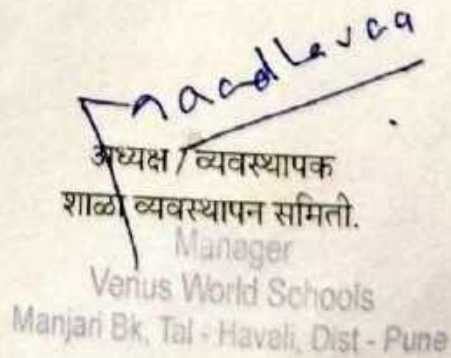 अध्यक्ष / व्यवस्थापक
शाळा व्यवस्थापन समिती.
Manager
Venus World Schools
Manjari Bk, Tal - Haveli, Dist - Pune